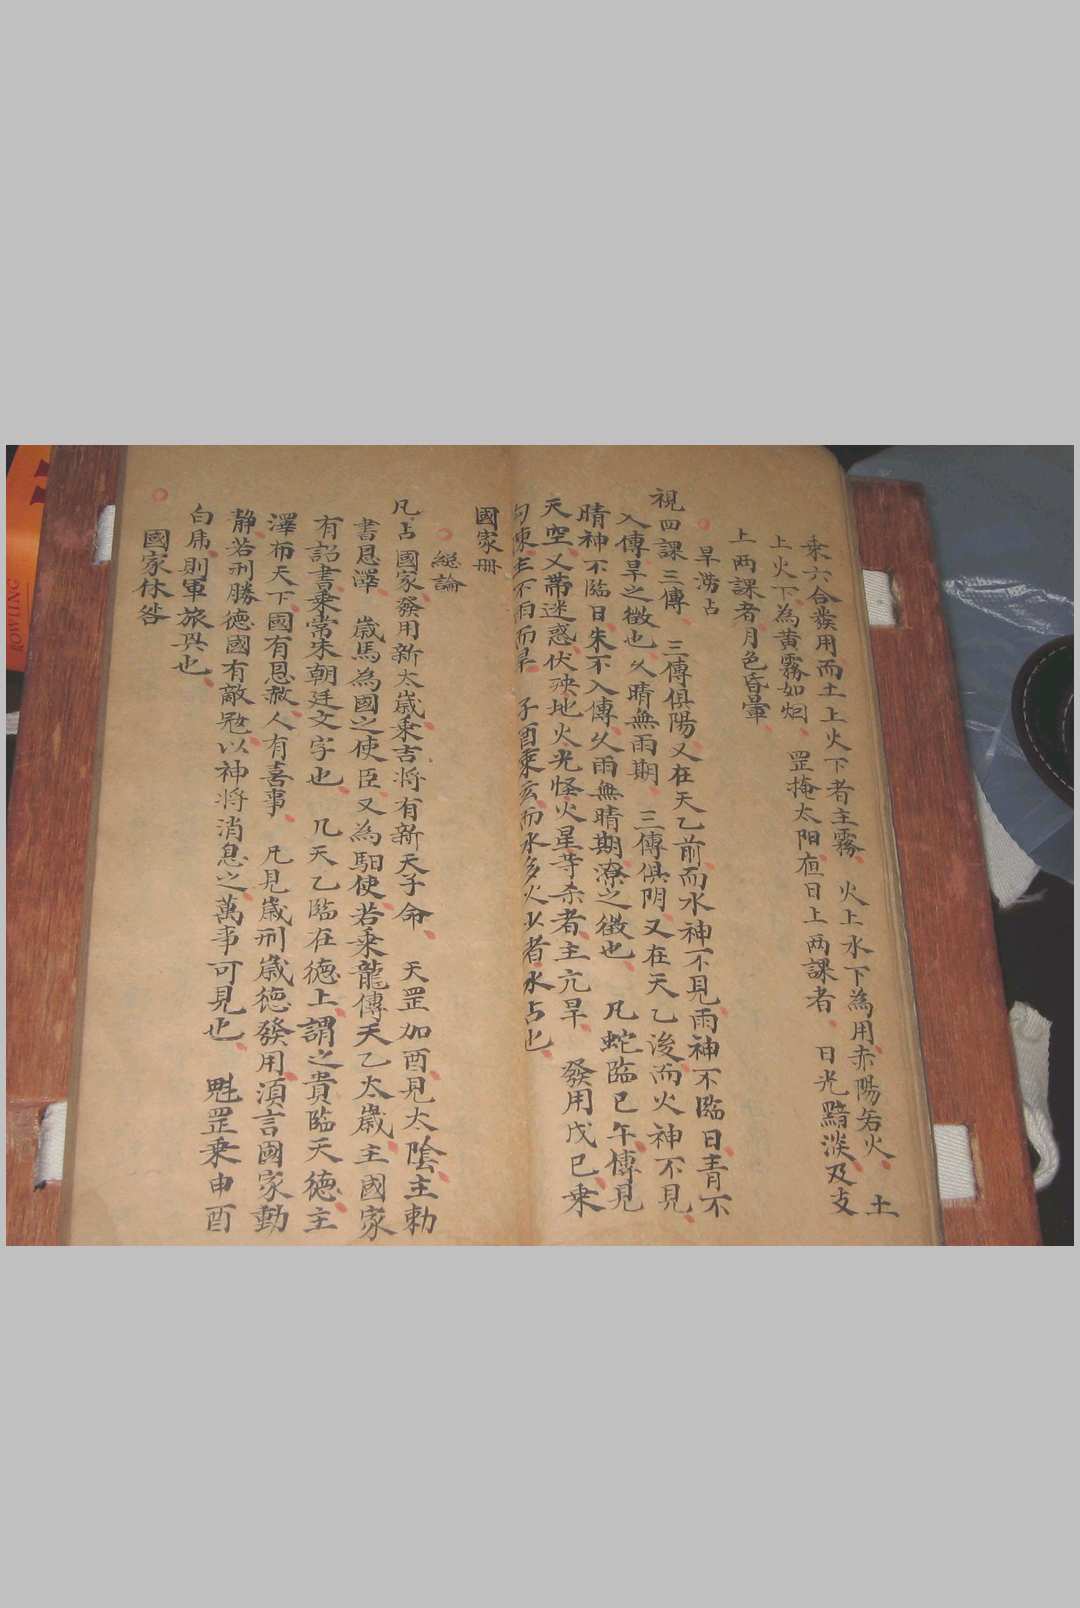 乘六合發用而土上火下者主霧　火上水下為用赤陽若火　土
上火下為黃霧如烟　罡掩太阳夜日上两課者　日光黯淡及支
上两課者月色昏暈
旱澇占
視四課三傳　三傳俱陽又在天乙前而水神不見雨神不臨日青不
入傳旱之徵也久晴無雨期　三傳俱阴又在天乙後而火神不見
晴神不臨日朱不入傳久雨無晴期潦之徵也　凡蛇臨巳午傳見
天空又帶迷惑伏殃地火光怪火星等杀者主亢旱　發用戊巳乘
勾陳主不雨而旱　子酉乘玄而水多火少者水占也
國家冊
総論
凡占國家發用新太歲乘吉將有新天子命　天罡加酉見太陰主勅
書恩澤　歲馬為國之使臣又為馹使若乘龍傳天乙太歲主國家
有詔書乘常朱朝廷文字也　凡天乙臨在德上謂之貴臨天德主
澤布天下國有恩赦人有喜事　凡見歲刑歲德發用須言國家動
静若刑勝德國有敵冦以神將消息之萬事可見也　魁罡乘申酉
白虎則軍旅兴也
國家休咎
ROWLING